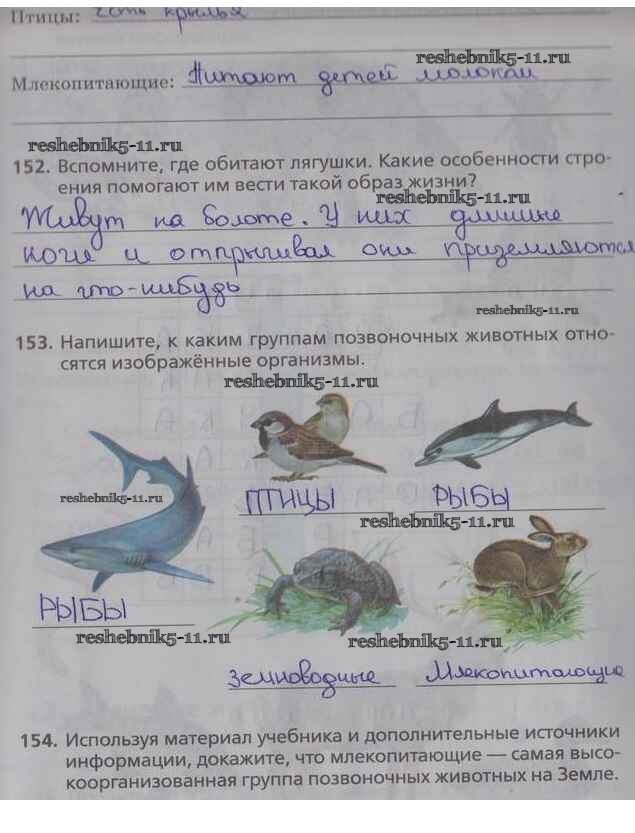 Птицы: есть крылья
reshebnik5-11.ru
Млекопитающие: Питают детей молоком
reshebnik5-11.ru
152. Вспомните, где обитают лягушки. Какие особенности стро-
ения помогают им вести такой образ жизни?
reshebnik5-11.ru
Живут на болоте. У них длинные
ноги и отпрыгивая они приземляются
на что-нибудь
reshebnik5-11.ru
153. Напишите, к каким группам позвоночных животных отно-
сятся изображённые организмы.
reshebnik5-11.ru
reshebnik5-11.ru
ПТИЦЫ РЫБЫ
reshebnik5-11.ru
РЫБЫ
reshebnik5-11.ru reshebnik5-11.ru
земноводные Млекопитающие
154. Используя материал учебника и дополнительные источники
информации, докажите, что млекопитающие — самая высо-
коорганизованная группа позвоночных животных на Земле.